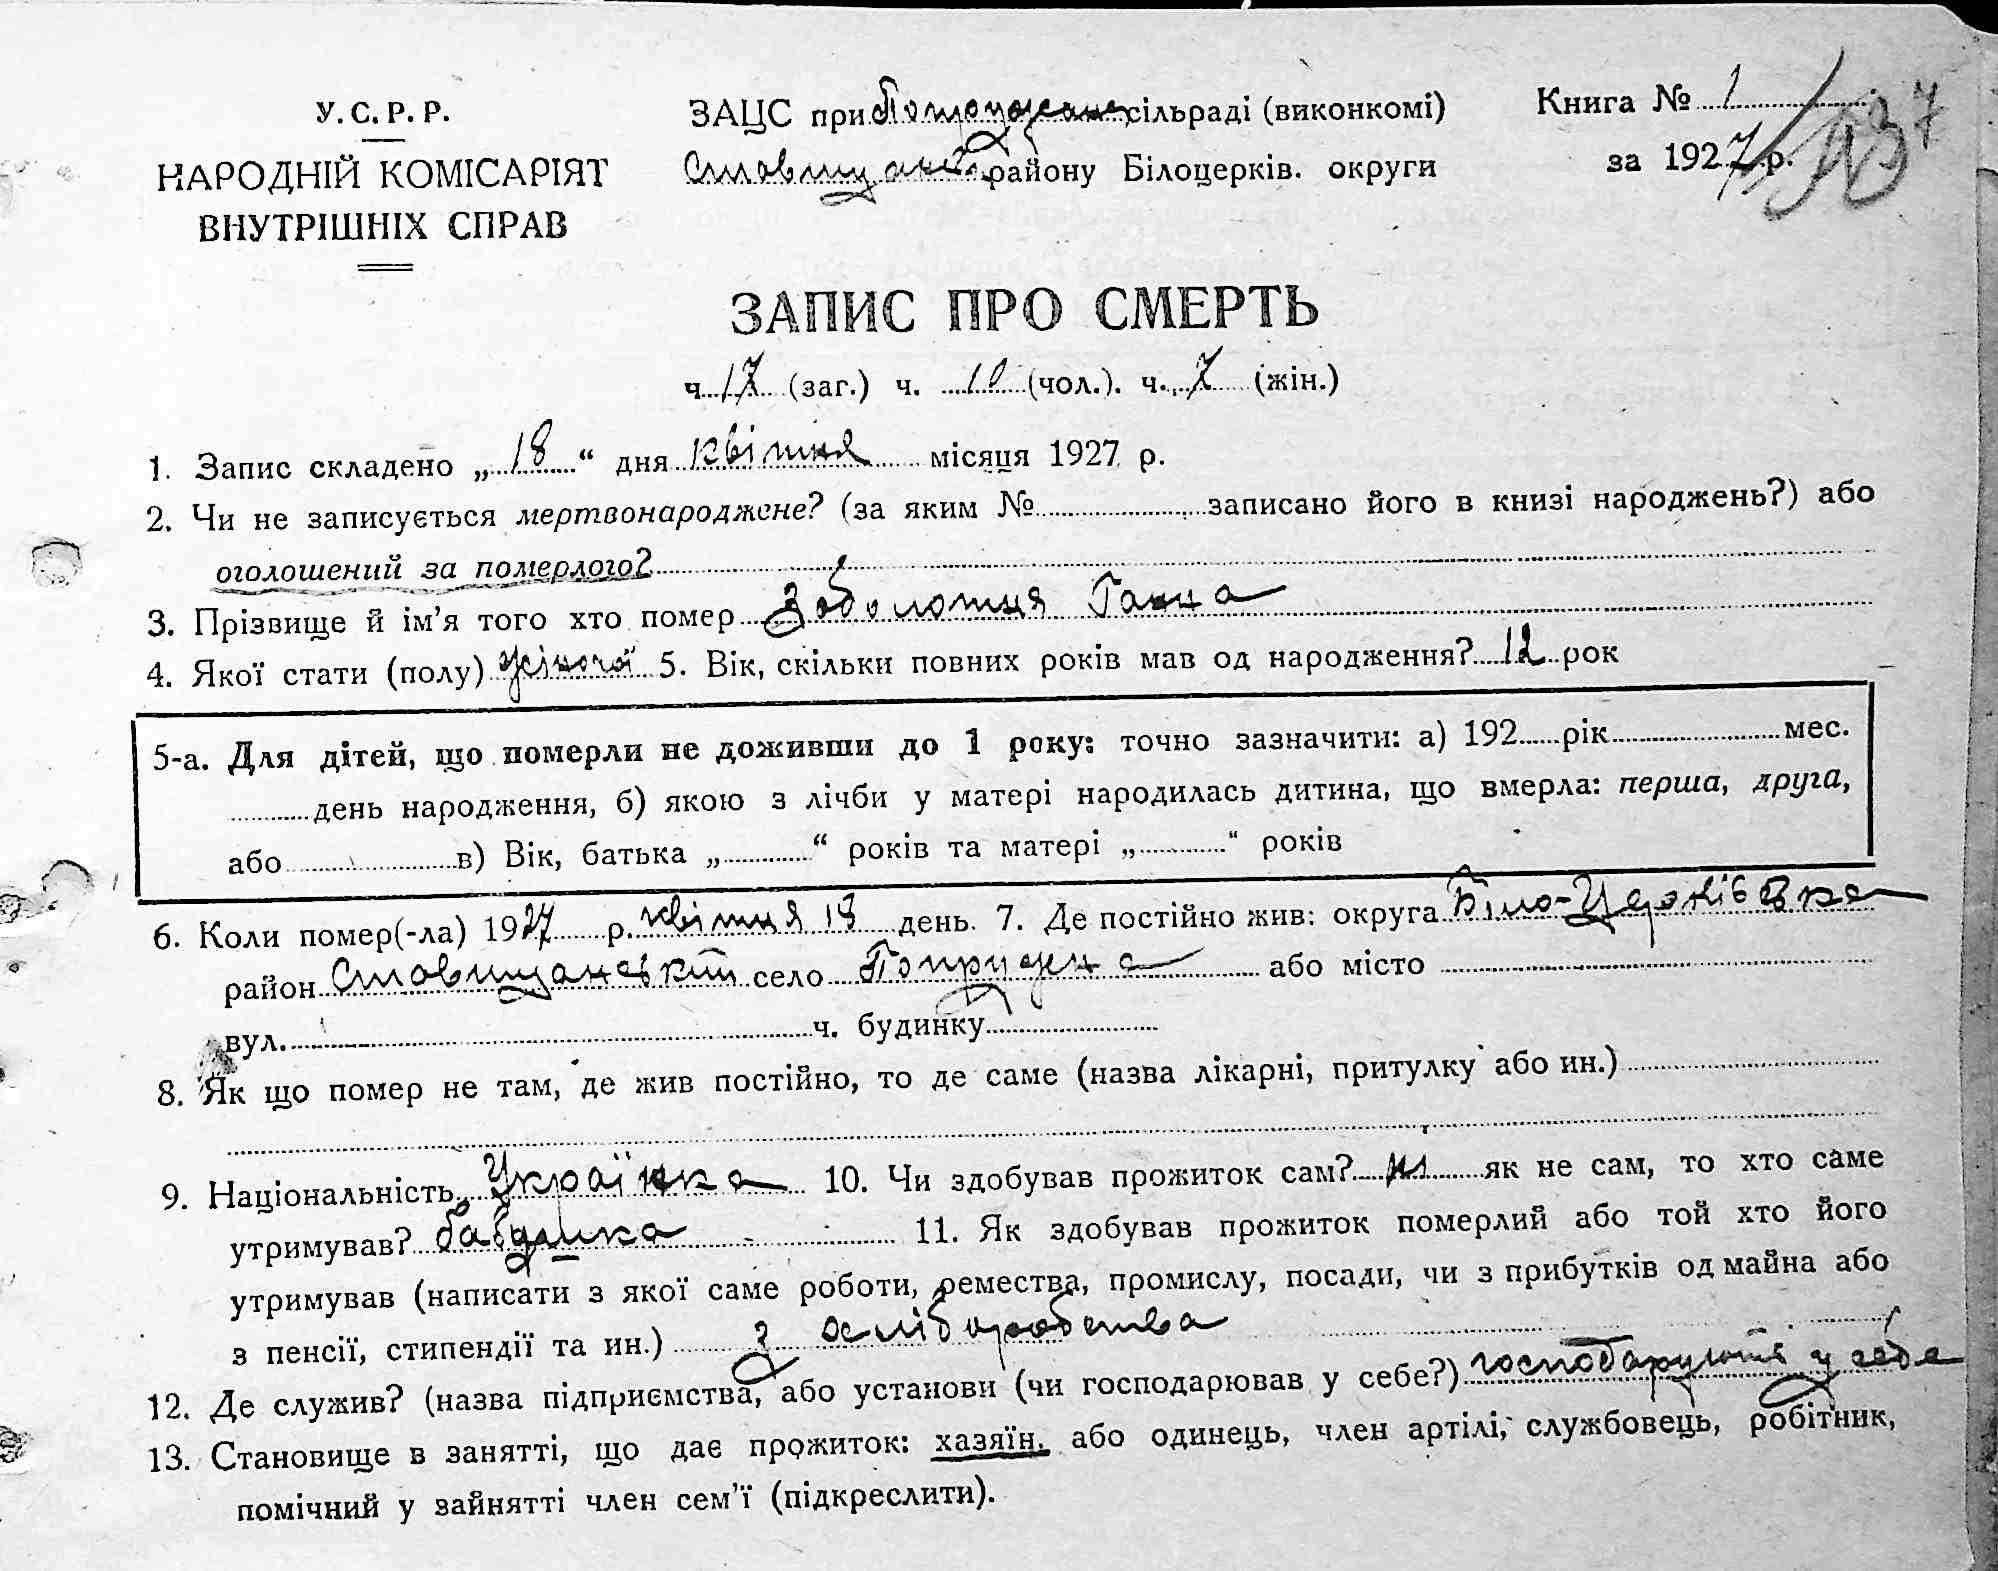 У.С.Р.Р.
НАРОДНІЙ КОМІСАРІЯТ
ВНУТРІШНІХ СПРАВ
ЗАЦС при сільраді (виконкомі)
району Білоцерків. округи
Книга № 1
за 1927 р.
ЗАПИС ПРО СМЕРТЬ
ч. 17 (заг.) ч. 10 (чол.). ч. 7 (жін.)
1. Запис складено „18“ дня квітня місяця 1927 р.
2. Чи не записується мертвонароджене? (за яким № записано його в книзі народжень?) або
оголошений за померлого?
3. Прізвище й ім'я того хто помер Заболотня Ганна
4. Якої стати (полу) жіночої 5. Вік, скільки повних років мав од народження? 12 рок
5-а. Для дітей, що померли не доживши до 1 року: точно зазначити: а) 192 рік мес.
день народження, б) якою з лічби у матері народилась дитина, що вмерла: перша, друга,
або в) Вік, батька „ “ років та матері „ “ років
6. Коли помер(-ла) 1927 р. квітня 18 день. 7. Де постійно жив: округа Біло-Церківвка
район Ставищанський село Попружна або місто
вул. ч. будинку
8. Як що помер не там, де жив постійно, то де саме (назва лікарні, притулку або ин.)
9. Національність Українка 10. Чи здобував прожиток сам? ні як не сам, то хто саме
утримував? 11. Як здобував прожиток померлий або той хто його
утримував (написати з якої саме роботи, ремества, промислу, посади, чи з прибутків од майна або
з пенсії, стипендії та ин.) з хліборобства
12. Де служив? (назва підприємства, або установи (чи господарював у себе?) господарують у себе
13. Становище в занятті, що дає прожиток: хазяїн, або одинець, член артілі, службовець, робітник,
помічний у зайнятті член сем'ї (підкреслити).